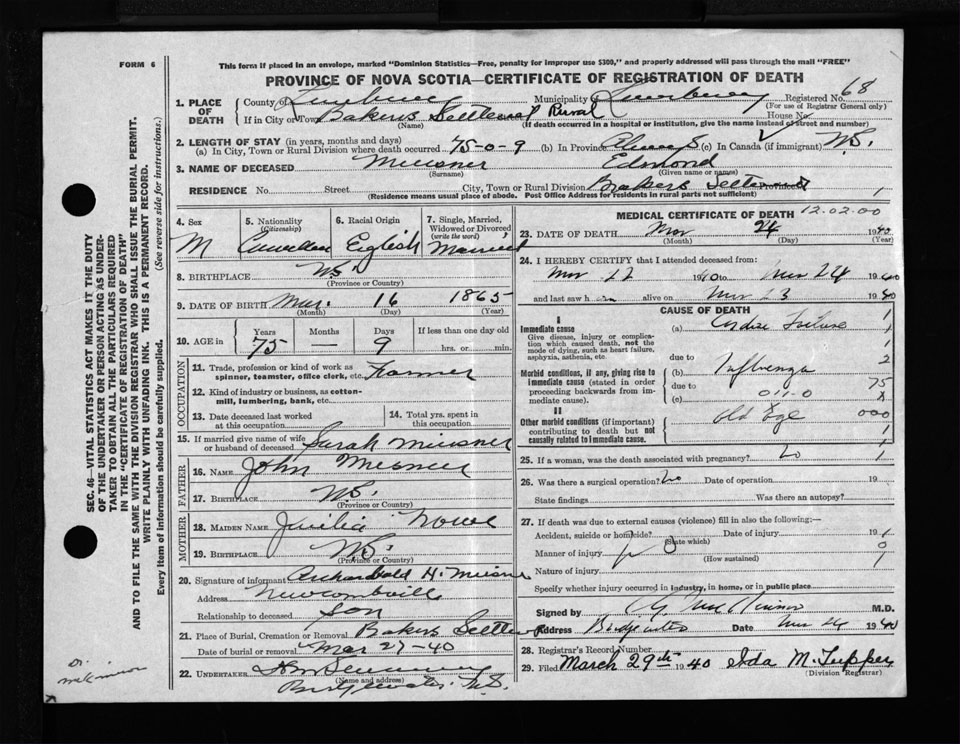 FORM 6
This form if placed in an envelope, marked "Dominion Statistics—Free, penalty for improper use $300," and properly addressed will pass through the mail "FREE"
PROVINCE OF NOVA SCOTIA—CERTIFICATE OF REGISTRATION OF DEATH
1. PLACE OF DEATH
County of Municipality of Registered No. 68
(For use of Registrar General only)
If in City or Town Bakers Settlement Rural House No.
(Name) (If death occurred in a hospital or institution, give the name instead of street and number)
2. LENGTH OF STAY (in years, months and days)
(a) In City, Town or Rural Division where death occurred 75-0-9 (b) In Province (c) In Canada (if immigrant) N.S.
3. NAME OF DECEASED Meisner Edmond
(Surname) (Given name or names)
RESIDENCE No. Street City, Town or Rural Division Bakers Settle Province 1
(Residence means usual place of abode. Post Office Address for residents in rural parts not sufficient)
4. Sex M
5. Nationality (Citizenship) Canadian
6. Racial Origin English
7. Single, Married, Widowed or Divorced (write the word) Married
8. BIRTHPLACE N.S.
(Province or Country)
9. DATE OF BIRTH Mar. 16 1865
(Month) (Day) (Year)
10. AGE in Years 75 Months — Days 9 If less than one day old hrs. or min.
OCCUPATION
11. Trade, profession or kind of work as spinner, teamster, office clerk, etc. Farmer
12. Kind of industry or business, as cotton-mill, lumbering, bank, etc.
13. Date deceased last worked at this occupation
14. Total yrs. spent in this occupation
15. If married give name of wife or husband of deceased Sarah Meisner
FATHER
16. NAME John Meisner
17. BIRTHPLACE N.S.
(Province or Country)
MOTHER
18. MAIDEN NAME
19. BIRTHPLACE N.S.
(Province or Country)
20. Signature of informant Archabold H. Meisner
Address Newcombville
Relationship to deceased Son
21. Place of Burial, Cremation or Removal Bakers Settlement
Date of burial or removal Mar 27-40
22. UNDERTAKER
(Name and address)
Bridgewater N.S.
MEDICAL CERTIFICATE OF DEATH 12.02.00
23. DATE OF DEATH Mar 24 1940
(Month) (Day) (Year)
24. I HEREBY CERTIFY that I attended deceased from:
Mar 22 1940 to Mar 24 1940
and last saw him alive on Mar 23 1940
CAUSE OF DEATH
I
Immediate cause
Give disease, injury or complication which caused death, not the mode of dying, such as heart failure, asphyxia, asthenia, etc.
(a) Cardiac Failure 1
due to
Morbid conditions, if any, giving rise to immediate cause (stated in order proceeding backwards from immediate cause).
(b) Influenza 2
due to 75
(c)
II
Other morbid conditions (if important) contributing to death but not causally related to immediate cause.
Old Age 000
25. If a woman, was the death associated with pregnancy? No 1
26. Was there a surgical operation? No Date of operation 19
State findings Was there an autopsy?
27. If death was due to external causes (violence) fill in also the following:—
Accident, suicide or homicide? Date of injury 19
(State which)
Manner of injury
(How sustained)
Nature of injury
Specify whether injury occurred in industry, in home, or in public place
Signed by M.D.
Address Bridgewater Date Mar 26 1940
28. Registrar's Record Number
29. Filed March 29th 1940 Ida M. Tupper
(Division Registrar)
SEC. 46—VITAL STATISTICS ACT MAKES IT THE DUTY
OF THE UNDERTAKER OR PERSON ACTING AS UNDER-
TAKER TO OBTAIN ALL THE PARTICULARS REQUIRED
IN THE "CERTIFICATE OF REGISTRATION OF DEATH"
AND TO FILE THE SAME WITH THE DIVISION REGISTRAR WHO SHALL ISSUE THE BURIAL PERMIT.
WRITE PLAINLY WITH UNFADING INK. THIS IS A PERMANENT RECORD.
Every item of information should be carefully supplied. (See reverse side for instructions.)